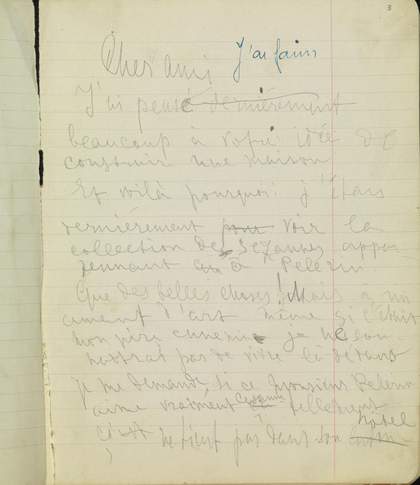 3
Cher ami J'ai faim
J'ai pensé dernièrement
beaucoup à votre idée de
construir une maison
Et voilà pourquoi j'étais
dernièrement pour voir la
collection de Sezannes appar
tennant à Pelerin
Que des belles choses! Mais à un
ament d'art même si c'était
mon pire ennemie je ne sou
hettrai pas de vivre là dedans
je me demande, si ce Monsieur Pelerin
aime vraiment Cezanne tellement
c'est ne tient pas dans son hôtel